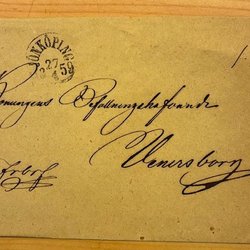 JÖNKÖPING
27
4
59
onungens Befallningshafvande
Wenersborg